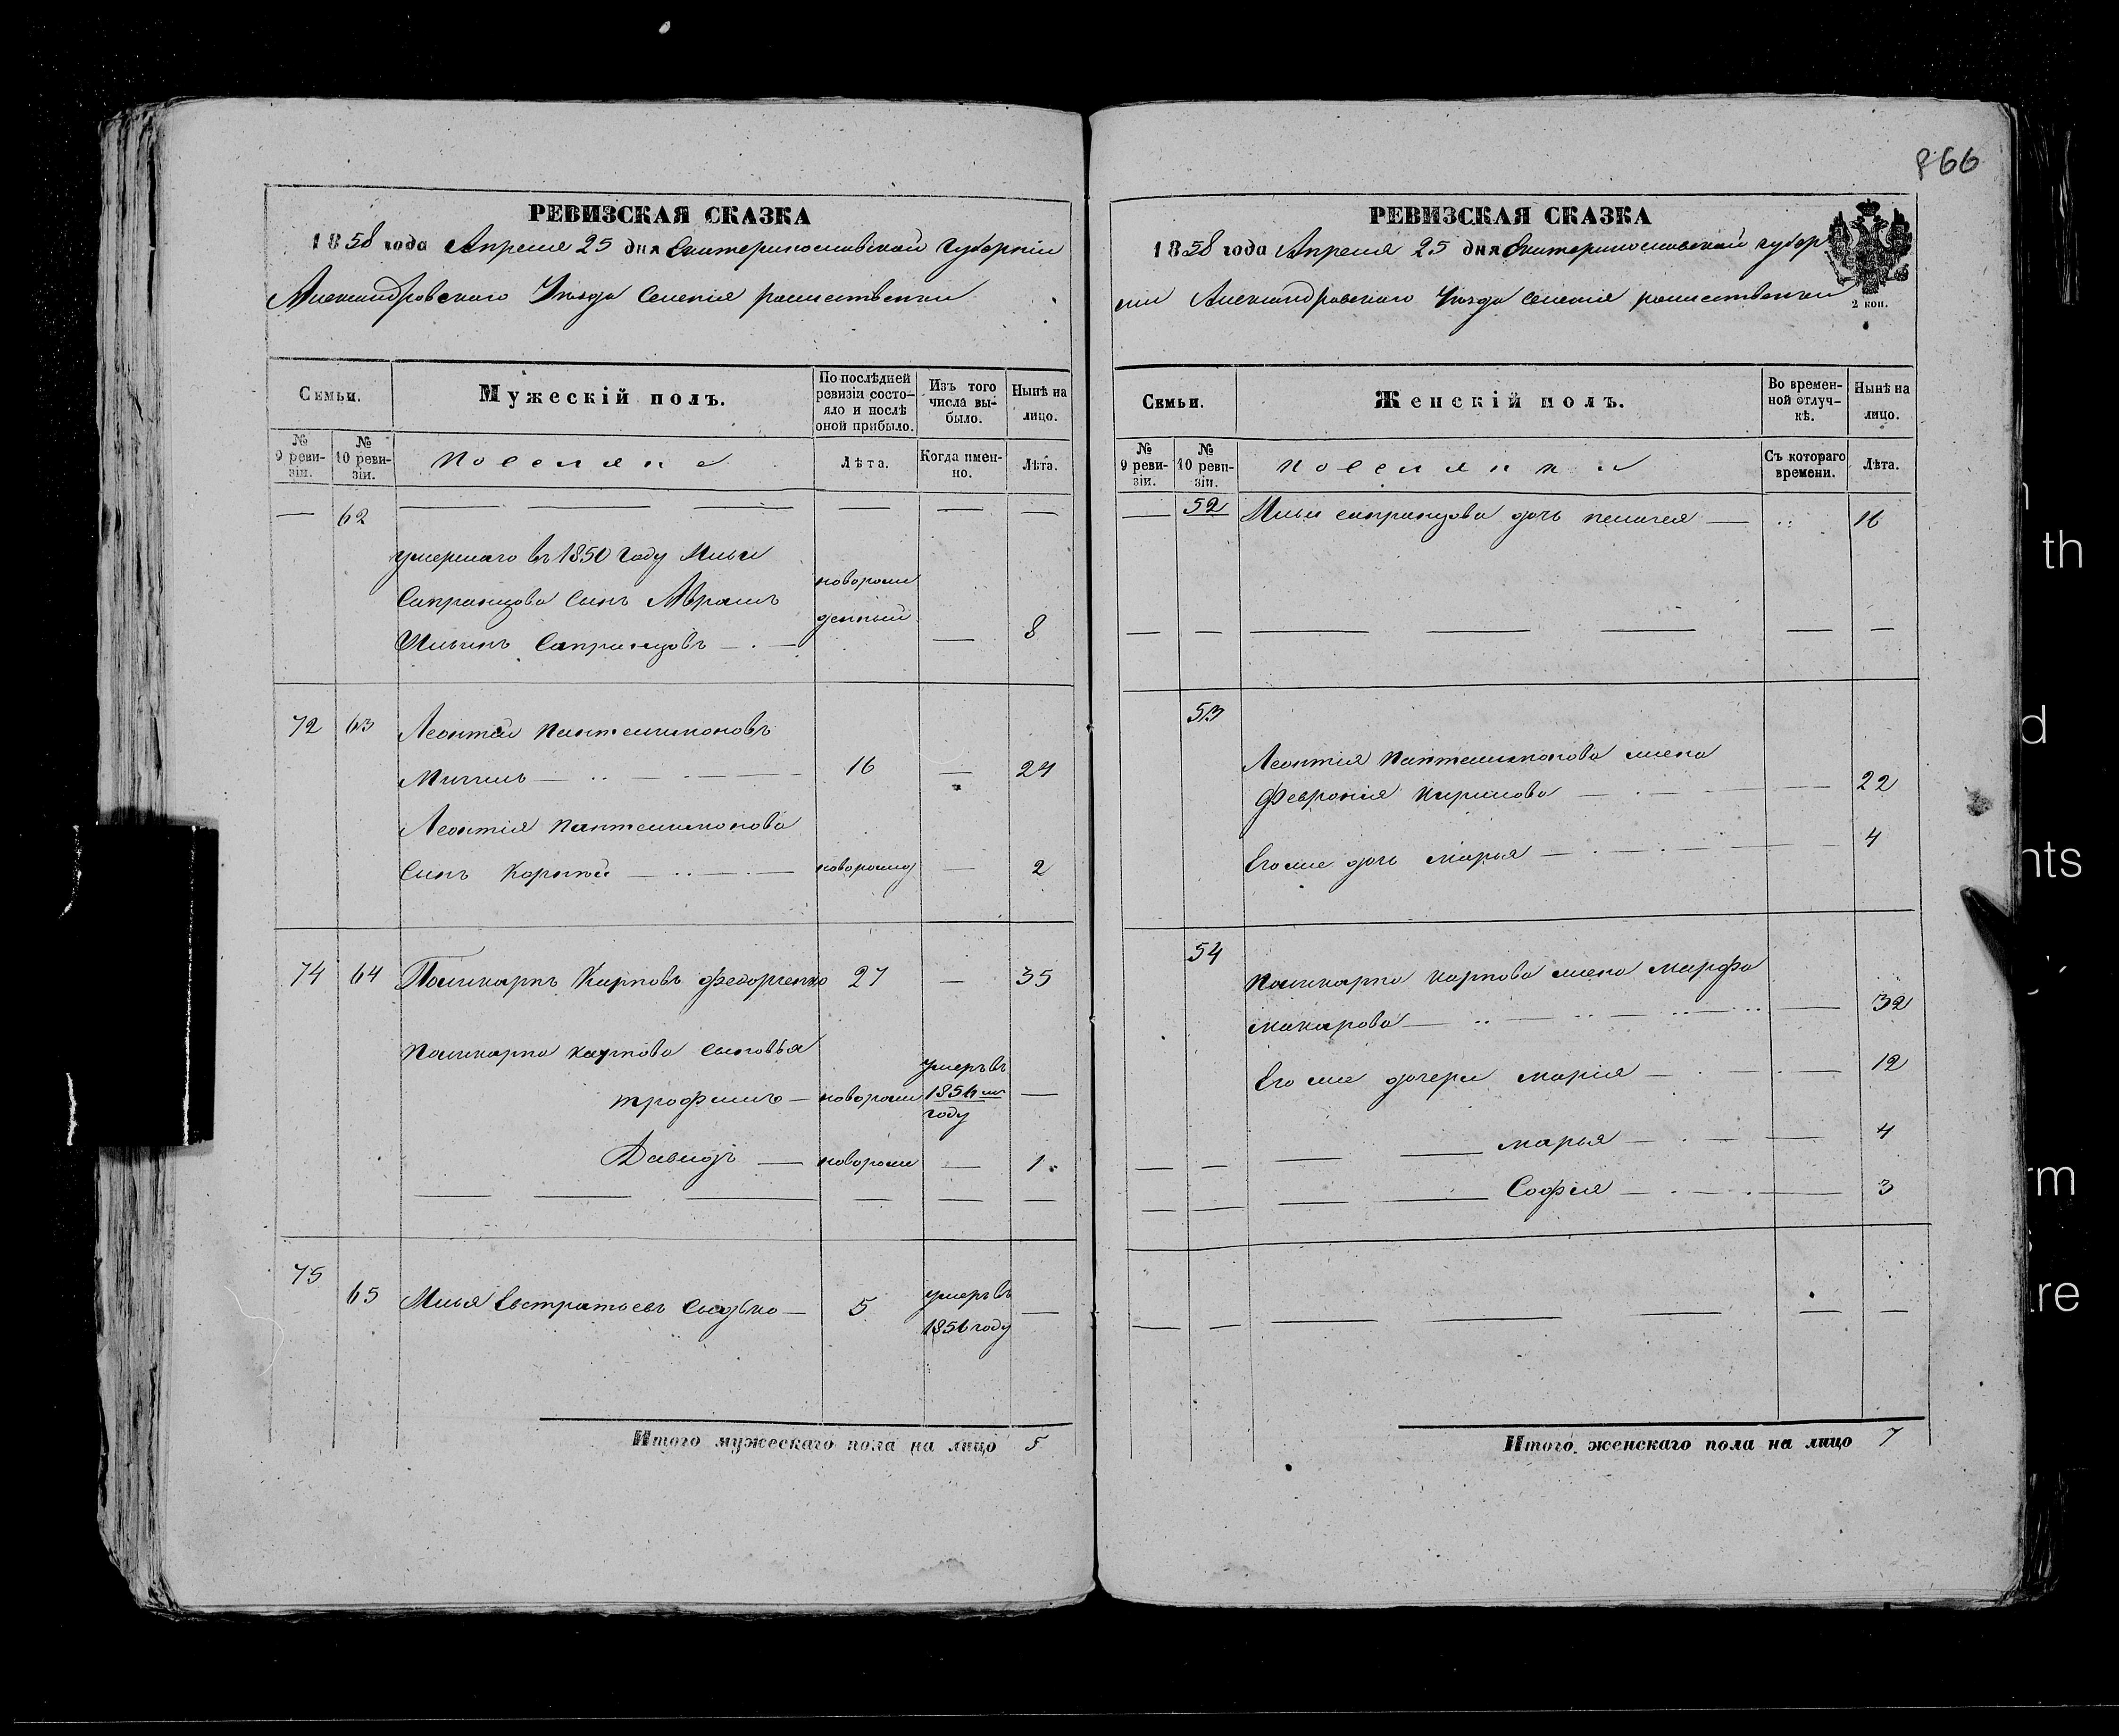 866
РЕВИЗСКАЯ СКАЗКА
1858 года Апреля 25 дня Екатеринославской Губерніи
Александровскаго Уѣзда Селенія рождественки
Семьи.
Мужескій полъ.
По послѣдней ревизіи состояло и послѣ оной прибыло.
Изъ того числа выбыло.
Нынѣ на лицо.
№ 9 ревизіи.
№ 10 ревизіи.
Поселяне
Лѣта.
Когда именно.
Лѣта.
62
умершаго въ 1850 году Ильи
Сапранцова Сынъ Аврамъ
новорож
денный
Ильинъ Сапранцовъ — 8
72 63 Леонтій Пантелимоновъ
16 — 24
Леонтія Пантелимонова
Сынъ Корнѣй — новорожд — 2
74 64 Поликарпъ Карповъ Федорченко 27 — 35
Поликарпа Карпова сыновья
трофимъ — новорож умеръ въ 1856 м году —
Давидъ — новорож — 1
75 65 Илья Евстратьевъ — 5 умеръ въ 1856 году —
Итого мужескаго пола на лицо 5
РЕВИЗСКАЯ СКАЗКА
1858 года Апреля 25 дня Екатеринославской губер
ніи Александровскаго Уѣзда Селенія рождественки
2 коп.
Семьи.
Женскій полъ.
Во временной отлучкѣ.
Нынѣ на лицо.
№ 9 ревизіи.
№ 10 ревизіи.
Поселянки
Съ котораго времени.
Лѣта.
52 Ильи сапранцова дочь пелагея — 16
53
Леонтія Пантелимонова жена
Февронія Кирилова — 22
Егоже дочь Марья — 4
54
Поликарпа Карпова жена Марфа
макарова — 32
Его же дочери марія — 12
марья — 4
Софія — 3
Итого женскаго пола на лицо 7
th
d
nts
rm
are